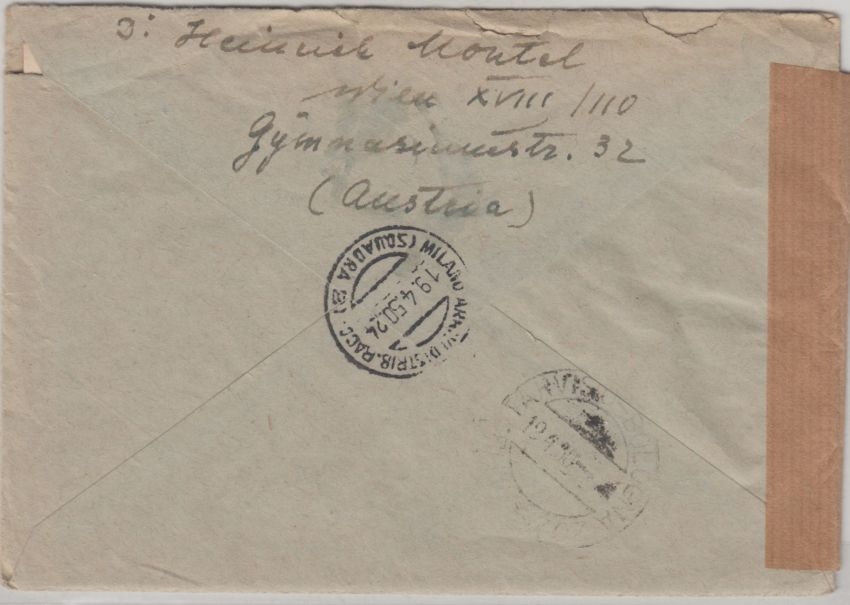 Heinrich Montel
Wien XVIII/110
Gymnasiumstr. 32
(Austria)
MILANO DISTRIB. RACC. (SQUADRA 2ª)
19.4.50.24
BOLOGNA